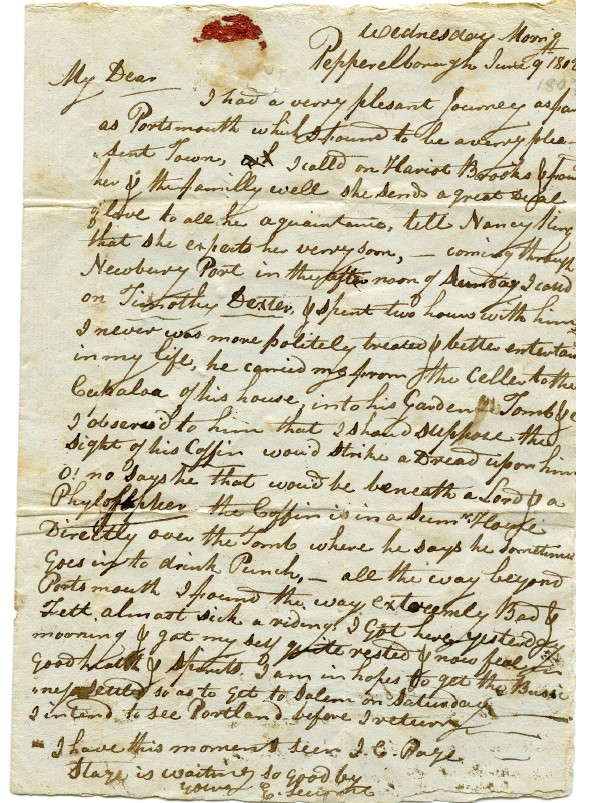 Wednesday Morng
Pepperelborough June 9 180
180
My Dear
I had a verry plesant Journey as far
as Portsmouth which I found to be a verry plea-
"sent Town, I calld on Hariot Brooks & foun
her & the familly well she sends a great deal
of love to all he aquaintance, tell Nancy King
that she expects her verry soon, – coming through
Newbury Port in the after noon of Sunday I calld
on Timothy Dexter, & spent two hours with him
I never was more politely treated & better entertain
in my life, he carried me from the Celler to the
Cubaloa of his house, into his Garden Tomb &c
I observ'd to him that I shoud suppose the
sight of his Coffin woud strike a Dread upon him
O! no says he that woud be beneath a Lord & a
Phylosipher the Coffin is in a Sumr House
Directly over the Tomb where he says he sometimes
Goes in to drink Punch, – all the way beyond
Portsmouth I found the way extreemly Bad &
Felt almost sick a riding, I Got here yesterday
morning & got my self quite rested & now feel in
Good health & spirits. I am in hopes to get the Busi
"ness settled so as to Get to Salem on Saturday
I intend to see Portland before I return
I have this moment seen J. C. Page
Stage is waiting so good by
yours E.